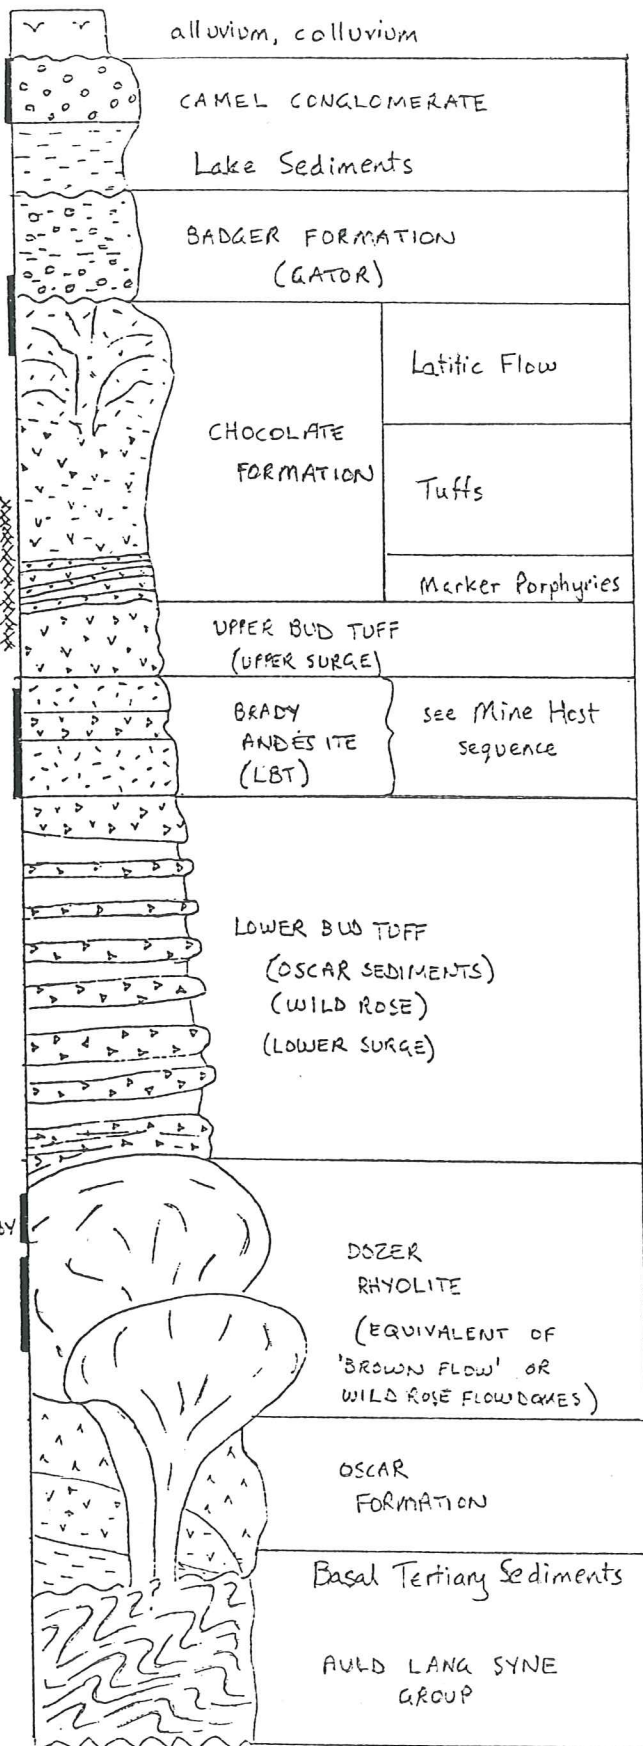 alluvium, colluvium
CAMEL CONGLOMERATE
Lake Sediments
BADGER FORMATION
(GATOR)
Latitic Flow
CHOCOLATE
FORMATION
Tuffs
Marker Porphyries
UPPER BUD TUFF
(UPPER SURGE)
BRADY
ANDESITE
(LBT)
see Mine Host
sequence
LOWER BUD TUFF
(OSCAR SEDIMENTS)
(WILD ROSE)
(LOWER SURGE)
DOZER
RHYOLITE
(EQUIVALENT OF
'BROWN FLOW' OR
WILD ROSE FLOWDOMES)
OSCAR
FORMATION
Basal Tertiary Sediments
AULD LANG SYNE
GROUP